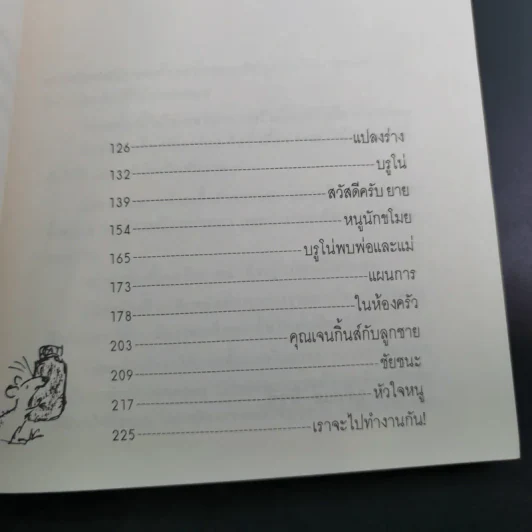 126 แปลงร่าง
132 บรูโน่
139 สวัสดีครับ ยาย
154 หนูนักขโมย
165 บรูโน่พบพ่อและแม่
173 แผนการ
178 ในห้องครัว
203 คุณเจนกิ้นส์กับลูกชาย
209 ชัยชนะ
217 หัวใจหนู
225 เราจะไปทำงานกัน!